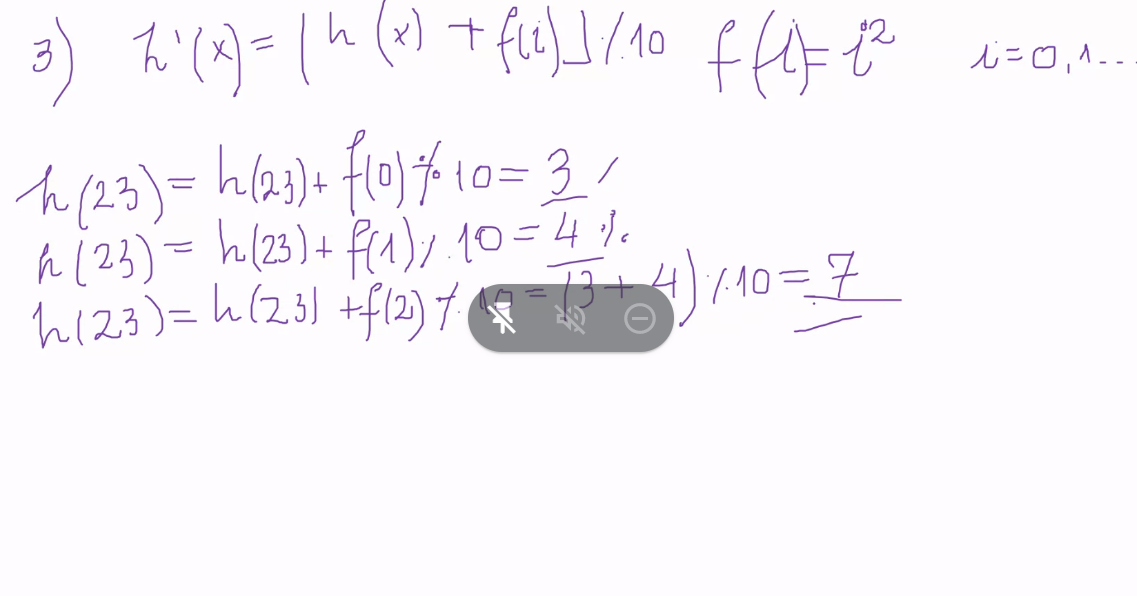 3) h'(x) = [h(x) + f(i)] % 10 f(i) = i² i=0,1...
h(23) = h(23) + f(0) % 10 = 3 /
h(23) = h(23) + f(1) % 10 = 4 %.
h(23) = h(23) + f(2) % 10 = (3 + 4) % 10 = 7